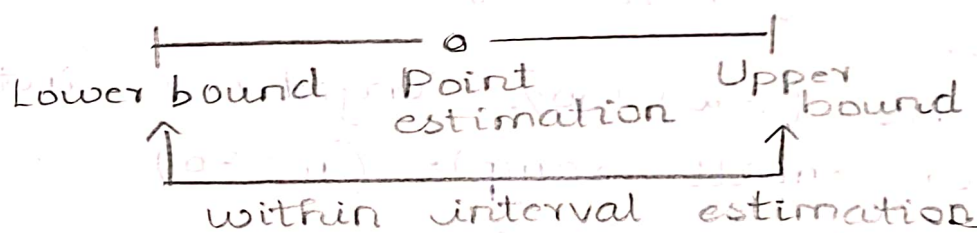 Lower bound Point estimation Upper bound
within interval estimation